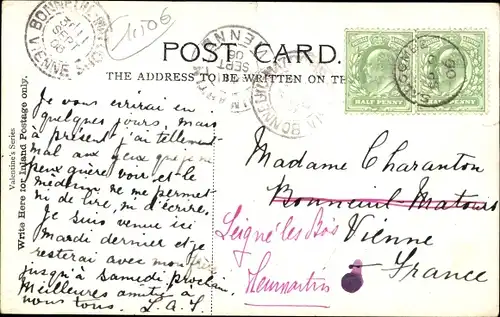 11506
BONNEUIL-MATOURS
VIENNE
POST CARD.
THE ADDRESS TO BE WRITTEN ON TH
HALF PENNY
HALF PENNY
Valentine's Series
Write Here for Inland Postage only.
Je vous écrirai en
quelques jours, mais
à présent j'ai tellement
mal aux yeux que je ne
peux guère voir et le
médecin ne me permet
ni de lire, ni d'écrire.
Je suis venue ici
Mardi dernier et je
resterai avec mon
jusqu'à samedi prochain.
Meilleures amitiés à
vous tous. L.A.S.
Madame Charanton
Bonneuil Matours
Leigné les Bois
Vienne
Monthoiron
France